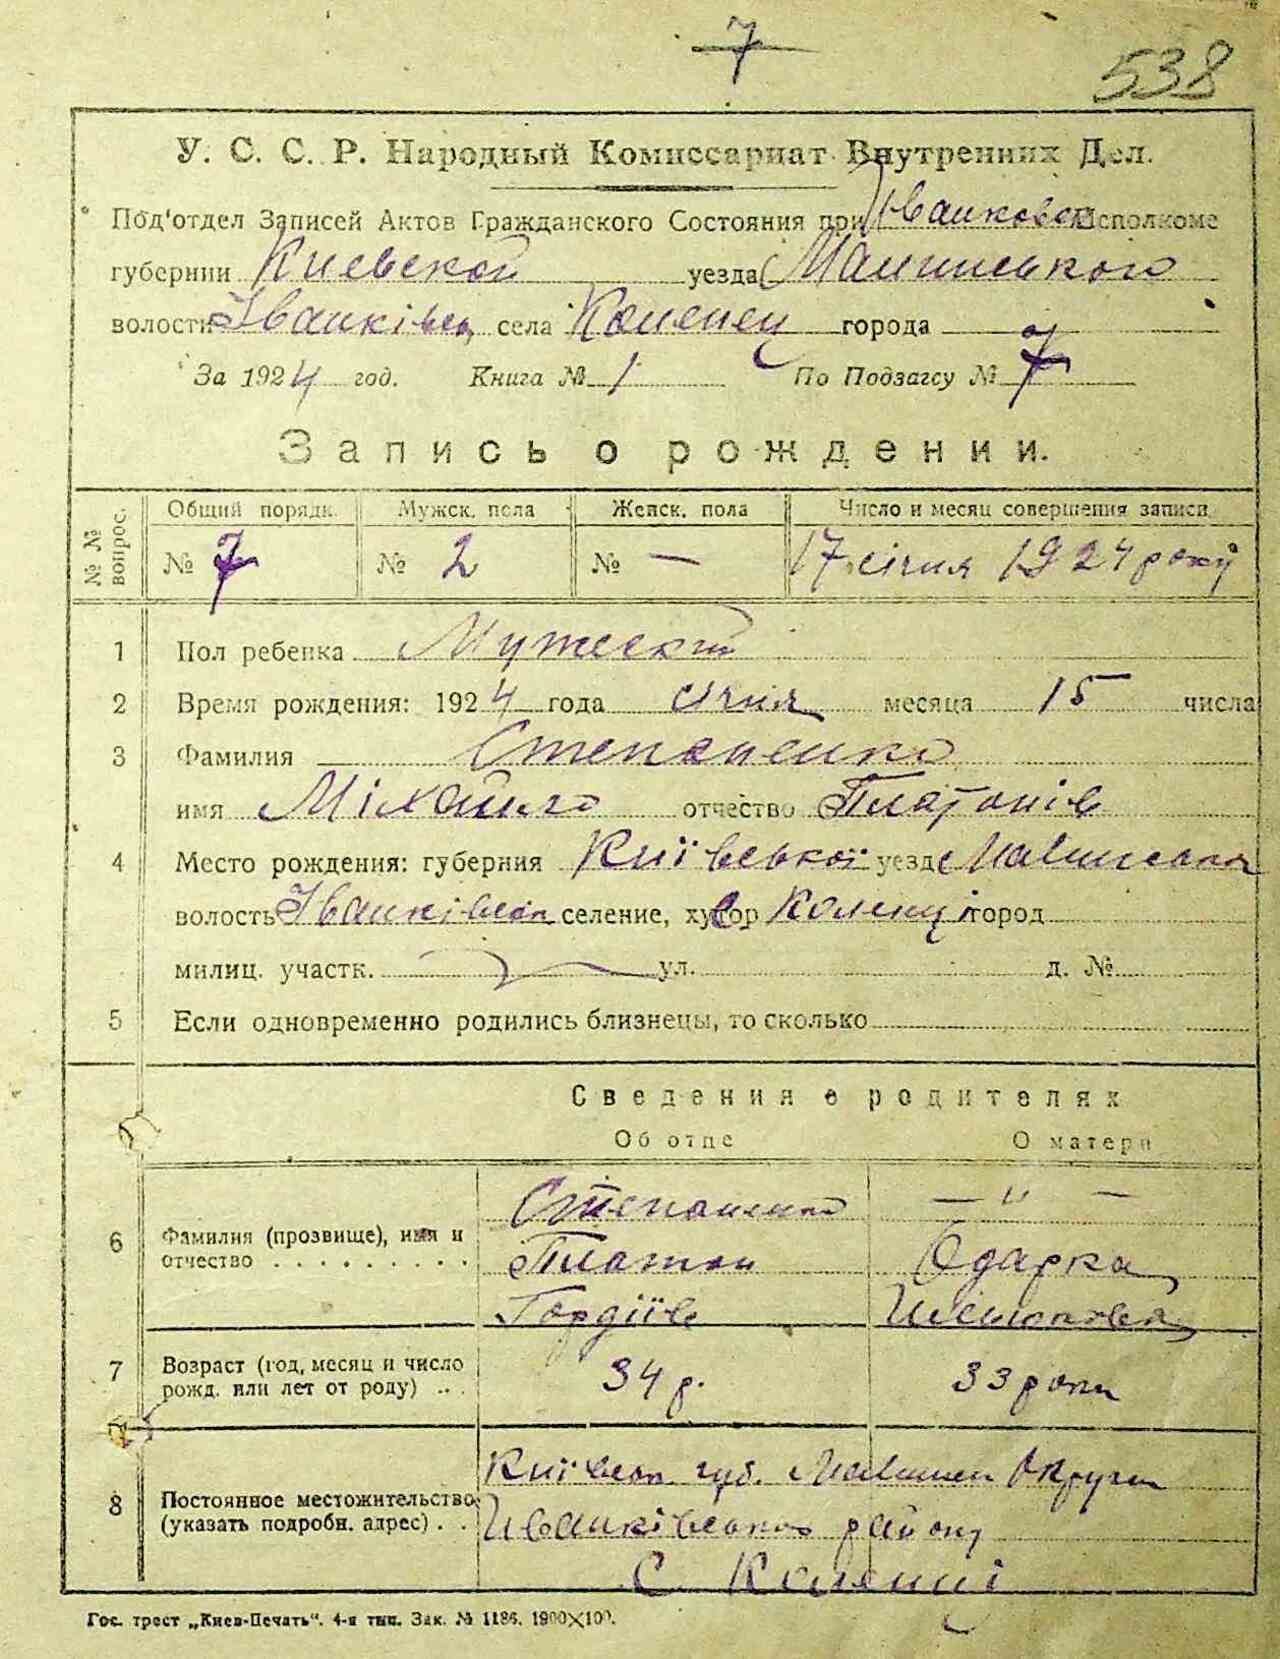 7
538
У. С. С. Р. Народный Комиссариат Внутренних Дел.
Под'отдел Записей Актов Гражданского Состояния при Іванковск Исполкоме
губернии Киевской уезда Малинського
волости Іванківськ села Коленец города
За 1924 год. Книга № 1 По Подзагсу № 7
Запись о рождении.
№ № вопрос. Общий порядк. Мужск. пола Женск. пола Число и месяц совершения записи
№ 7 № 2 № — 17 січня 1924 року
1 Пол ребенка Мужеский
2 Время рождения: 1924 года січня месяца 15 числа
3 Фамилия Степаненко
имя Міхайло отчество Платонів
4 Место рождения: губерния Київської уезд Малинськ
волость Іванківськ селение, хутор с Коленці город
милиц. участк. ул. д. №
5 Если одновременно родились близнецы, то сколько
Сведения о родителях
Об отце О матери
6 Фамилия (прозвище), имя и отчество Степаненко — " —
Платон Одарка
Гордіїв
7 Возраст (год, месяц и число рожд. или лет от роду) 34 р. 33 роки
8 Постоянное местожительство (указать подробн. адрес) Київськ. губ. Малинськ Округи
Иванківського району
с Коленці
Гос. трест „Киев-Печать“. 4-я тип. Зак. № 1186. 1900×100.